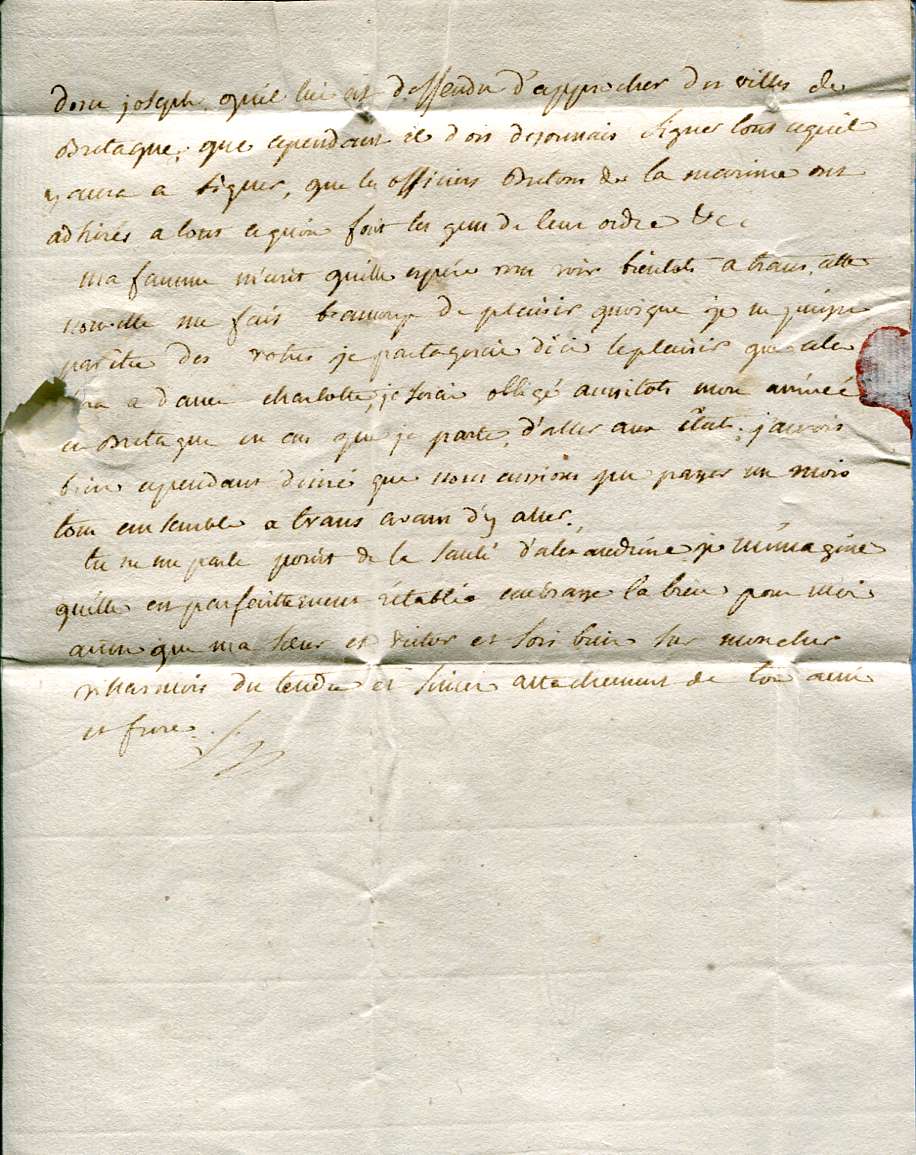 dom joseph quil lui est deffendu d'approcher des villes de
Bretagne, que cependant il dois desormais signer tous cequil
y aura a signer, que les officiers Bretons de la marine ont
adhérés a tous cequon fait les gens de leur ordre &c.
ma famme m'ecrit quelle espére vous voir bientots a trans, cette
nouvelle me fais beaucoup de plaisir quoique je ne puisse
paritre des votres je partagerai d'ici leplaisir que cela
fra a d'anni charlotte, je serai obligé aussitots mon arrivée
en Bretagne en cas que je parte, d'aller aux états, j'aurois
bien cependant désiré que nous eussions pu passer un mois
tous ensemble a trans avant d'y aller.
tu ne me parle point de la santé d'alexandrine je m'imagine
quélle est parfaittement rétablie embrasse la bien pour moi
ainsi que ma sœur et victor et sois bien sur moncher
du tendre et sincer attachement de ton ami
et frere.